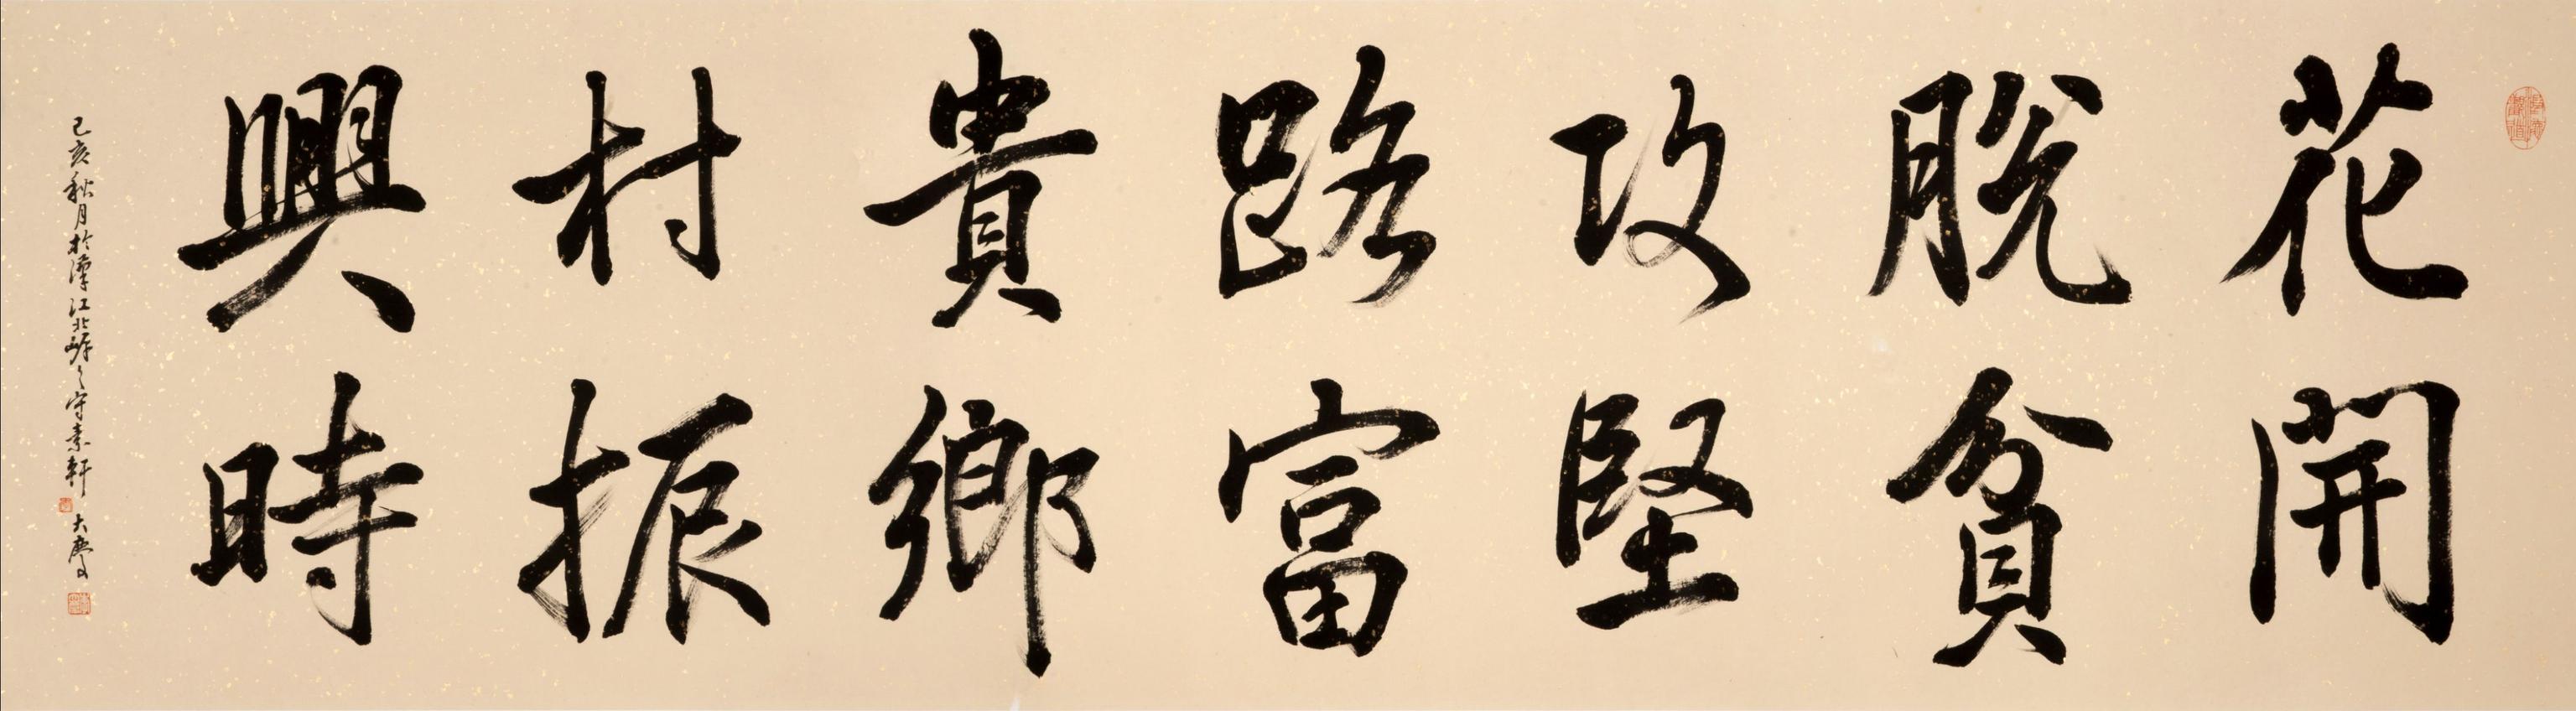 花開
脫貧
攻堅
路富
貴鄉
村振
興時
己亥秋月於漢江北岸之守素軒
大慶